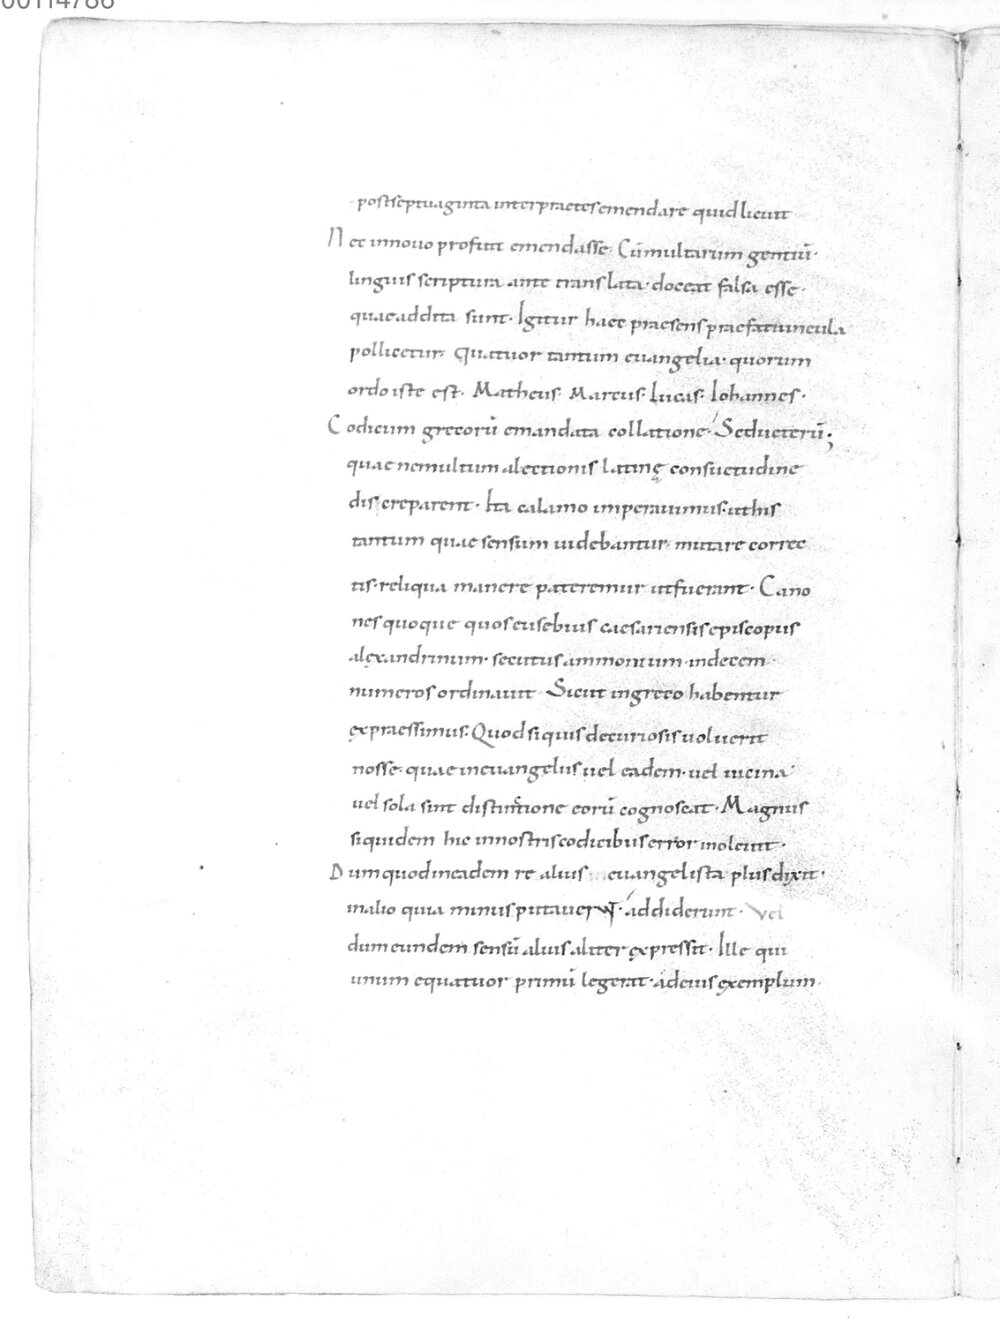 00114786
postseptuaginta interpraetesemendare quid licuit
Nec innouo profuit emendasse. Cūmultarum gentiū·
linguis scriptura ante translata· doceat falsa esse·
quae addita sunt· Igitur haec praesens praefatiuncula
pollicetur· quatuor tantum euangelia· quorum
ordo iste est· Matheus· Marcus· Lucas· Iohannes·
Codicum grecorū emandata collatione· Sedueterū;
quae nemultum alectionis latinę consuetudine
discreparent· Ita calamo imperauimus· uthis
tantum quae sensum uidebantur mutare correc
tis· reliqua manere pateremur utfuerant· Cano
nes quoque quos eusebius caesariensis episcopus
alęxandrinum· secutus ammonium· indecem
numeros ordinauit Sicut ingreco habentur
ęxpraessimus· Quod siquis decuriosis uoluerit
nosse· quae ineuangeliis uel eadem· uel uicina
uel sola sint distinctione eorū cognoscat· Magnus
siquidem hic innostris codicibus error inoleuit·
Dum quod ineadem re alius euangelista plus dixit·
inalio quia minus putauerunt· áddiderunt· Vel
dum eundem sensū alius aliter ęxpressit· Ille qui
unum equattuor primū legerat· adeius ęxemplum